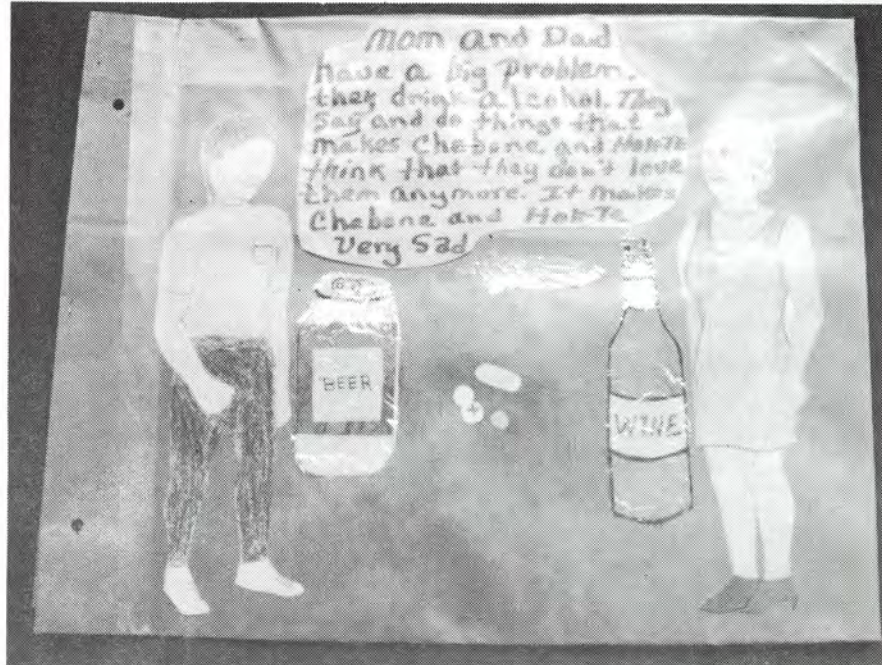 Mom and Dad
have a big problem.
they drink alcohol. They
say and do things that
makes Chebone and Hok-Te
think that they don't love
them anymore. It makes
Chebone and Hok-Te
Very Sad
BEER
WINE